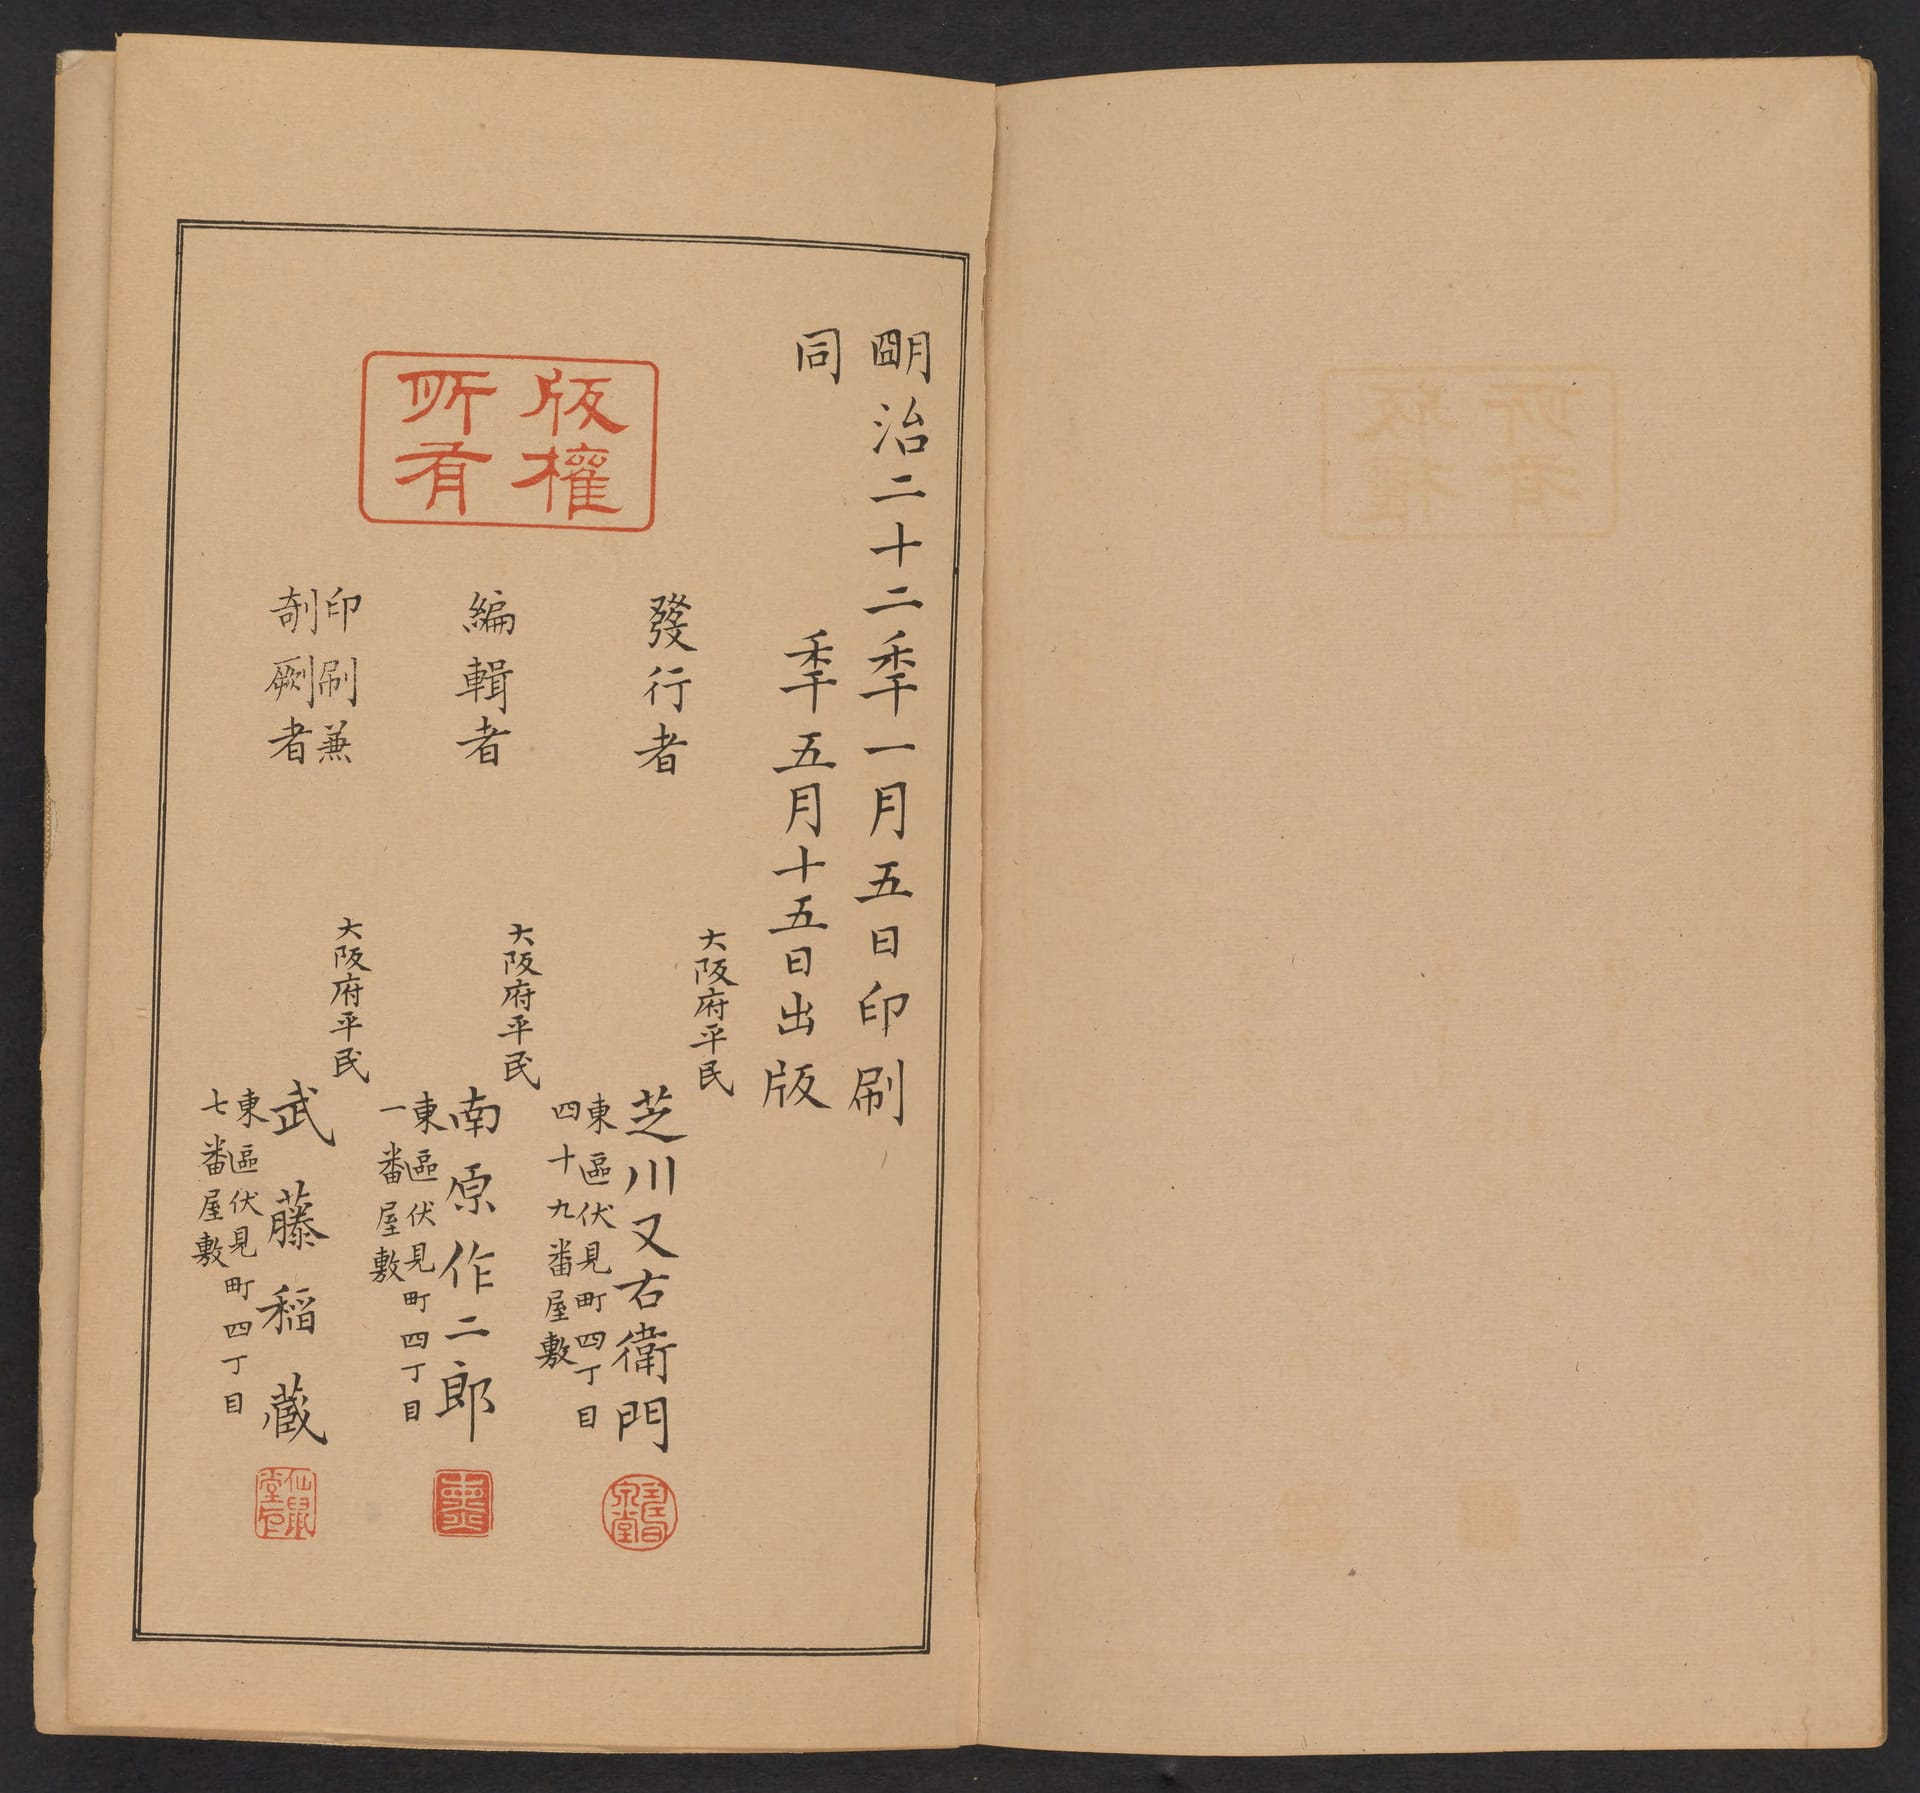 朙治二十二秊一月五日印刷
同　　　秊五月十五日出版
版權
所有
發行者
大阪府平民
芝川又右衛門
東區伏見町四丁目
四十九番屋敷
編輯者
大阪府平民
南原作二郎
東區伏見町四丁目
一番屋敷
印刷兼
剞劂者
大阪府平民
武藤稲蔵
東區伏見町四丁目
七番屋敷
仙鼠
堂印